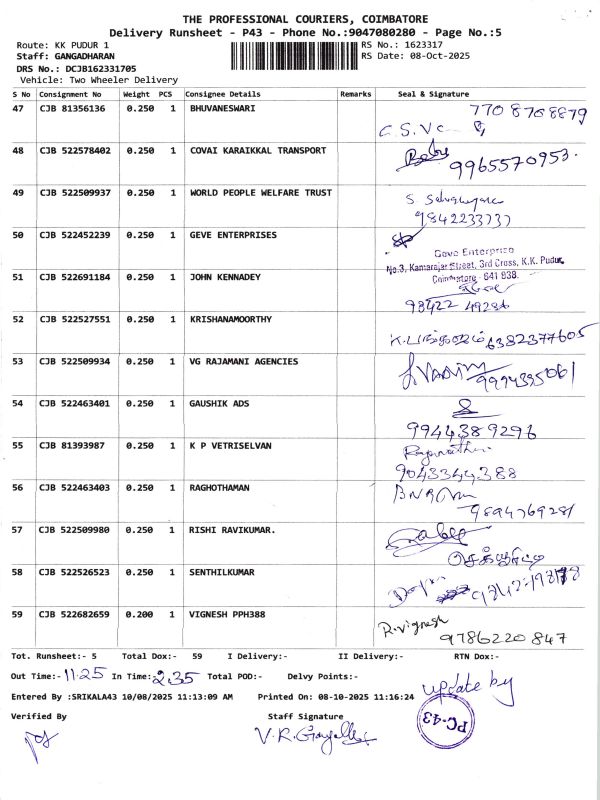 THE PROFESSIONAL COURIERS, COIMBATORE
Delivery Runsheet - P43 - Phone No.:9047080280 - Page No.:5
Route: KK PUDUR 1
RS No.: 1623317
Staff: GANGADHARAN
RS Date: 08-Oct-2025
DRS No.: DCJB162331705
Vehicle: Two Wheeler Delivery
S No Consignment No Weight PCS Consignee Details Remarks Seal & Signature
47 CJB 81356136 0.250 1 BHUVANESWARI
7708708879
48 CJB 522578402 0.250 1 COVAI KARAIKKAL TRANSPORT
9965570953.
49 CJB 522509937 0.250 1 WORLD PEOPLE WELFARE TRUST
9842233737
50 CJB 522452239 0.250 1 GEVE ENTERPRISES
Geve Enterprise
No.3, Kamarajar Street, 3rd Cross, K.K. Pudur,
Coimbatore - 641 038.
51 CJB 522691184 0.250 1 JOHN KENNADEY
93422 49286
52 CJB 522527551 0.250 1 KRISHANAMOORTHY
6382377605
53 CJB 522509934 0.250 1 VG RAJAMANI AGENCIES
54 CJB 522463401 0.250 1 GAUSHIK ADS
9944389296
55 CJB 81393987 0.250 1 K P VETRISELVAN
9043344388
56 CJB 522463403 0.250 1 RAGHOTHAMAN
9894769281
57 CJB 522509980 0.250 1 RISHI RAVIKUMAR.
58 CJB 522526523 0.250 1 SENTHILKUMAR
59 CJB 522682659 0.200 1 VIGNESH PPH388
R.Vignesh
9786220847
Tot. Runsheet:- 5 Total Dox:- 59 I Delivery:- II Delivery:- RTN Dox:-
Out Time:- 11.25 In Time:- 2.35 Total POD:- Delvy Points:-
update by
Entered By :SRIKALA43 10/08/2025 11:13:09 AM Printed On: 08-10-2025 11:16:24
PC-43
Verified By Staff Signature